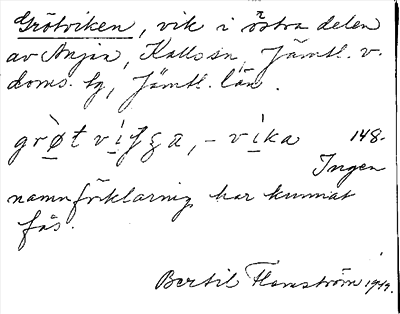 Grötviken, vik i östra delen
av Anjan, Kall sn, Jämtl. v.
doms. tg, Jämtl. län.
148.
Ingen
namnförklaring har kunnat
fås.
Bertil Flemström 1944.